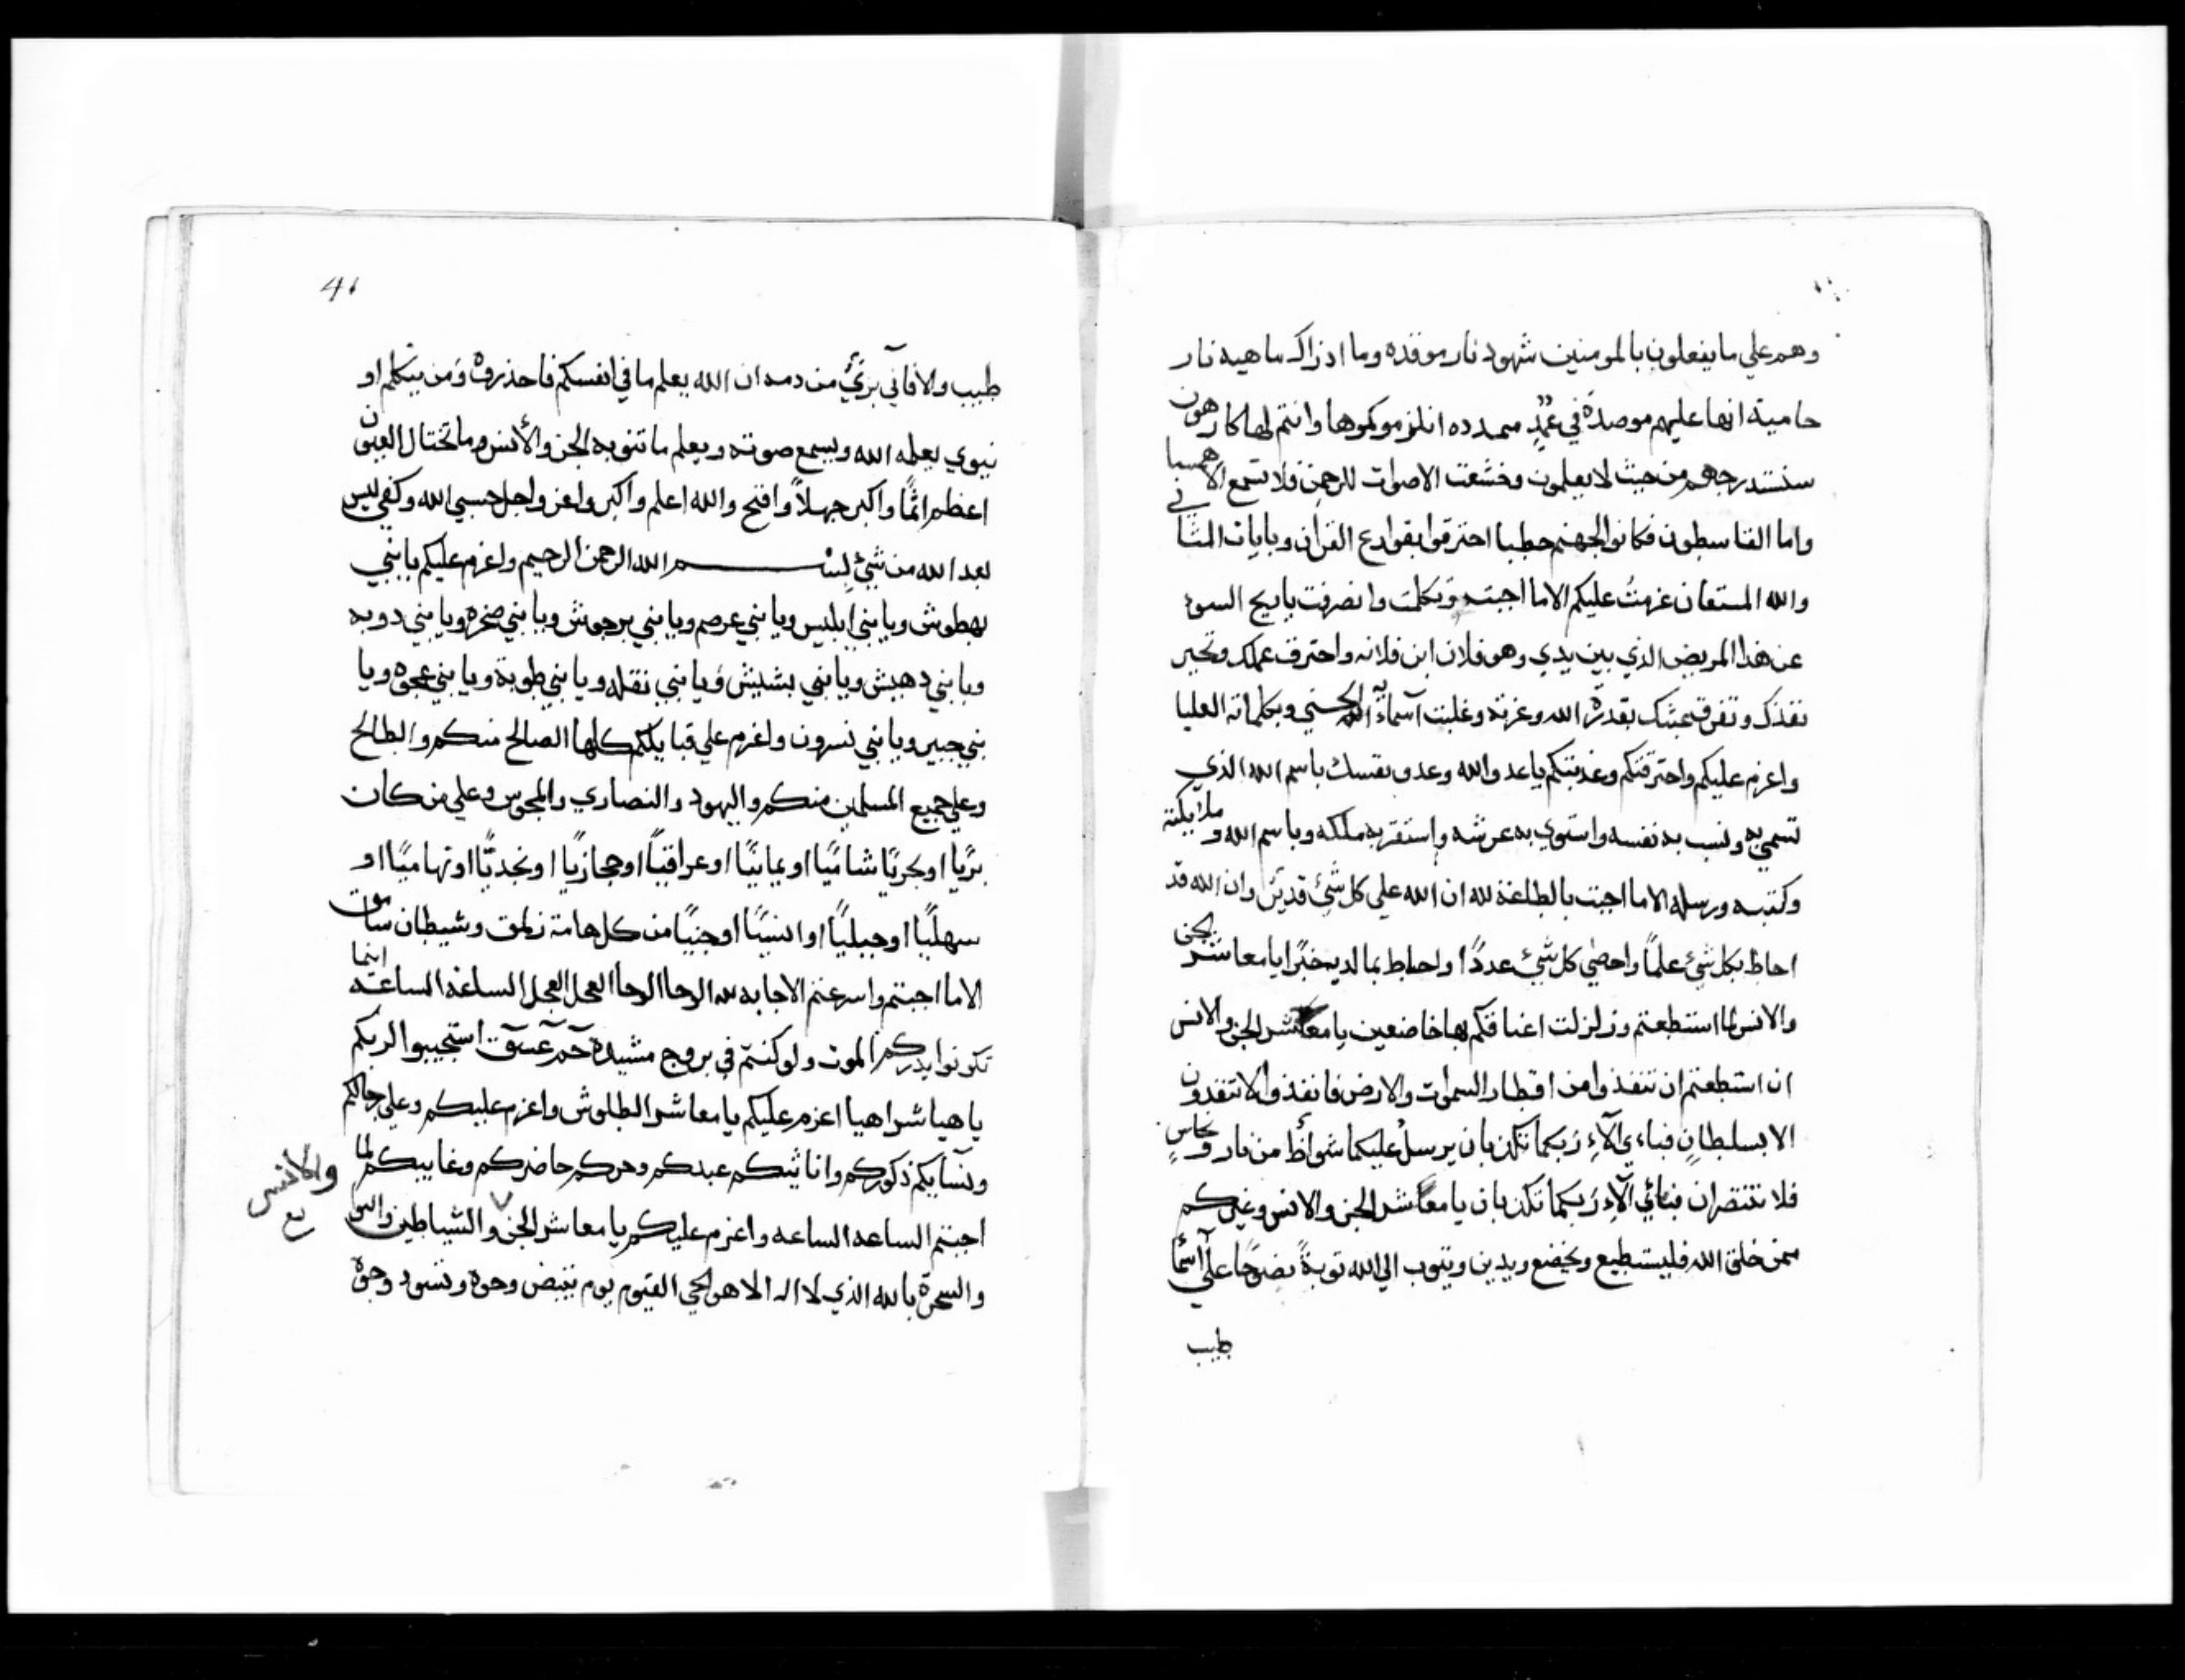 وهم علي ما يفعلون بالمومنين شهود نار موقده وما ادراك ماهيه نار
حامية انها عليهم موصدة في عمد ممدده انلزموكموها وانتم لها كارهون
سنستدرجهم من حيث لا يعلمون وخشعت الاصوات للرحمن فلا تسمع الا همسا
واما القاسطون فكانوا لجهنم حطبا احترقوا بقوارع القرآن وبايات المثاني
والله المستعان عزمت عليكم الا ما اجبت وتكلمت وانصرفت يا ريح السوء
عن هذا المريض الذي بين يدي وهو فلان ابن فلانه واحترق عملك وتحير
نفذك وتفرق عشك بقدرة الله وعزته وغلبت آسمآئه الحسني وبكلماته العليا
واعزم عليكم واحترقتكم وعذبتكم يا عدو الله وعدو نفسك باسم الله الذي
تسمي به ونسب به نفسه واستوي به عرشه واستقر به ملكه وباسم الله وملايكته
وكتبه ورسله الا ما اجبت بالطاعة لله ان الله علي كل شئ قدير وان الله قد
احاط بكل شئ علماً واحصي كل شئ عدداً واحاط بما لديه خبرًا يا معاشر الجن
والانس لما استطعتم وزلزلت اعناقكم لها خاضعين يا معاشر الجن والانس
ان استطعتم ان تنفذوا من اقطار السموات والارض فانفذوا لا تنفذون
الا بسلطان فباءي آلآءِ ربكما تكذبان يرسل عليكما شواظ من نار ونحاس
فلا تنتصران فبائي آلآءِ ربكما تكذبان يا معاشر الجن والانس وغيركم
ممن خلق الله فليستطيع ويخضع ويدين ويتوب الي الله توبةً نصوحًا علي آسمآ
طبيب
41
طبيب والا فآني برئ من دمه ان الله يعلم ما في انفسكم فاحذروه ومن يتكلم او
ينوي يعلمه الله ويسمع صوته ويعلم ما تنو به الجن والأنس وما تختال العيون
اعظم اثمًا واكبر جهلاً وافتح والله اعلم واكبر واعز واجل حسبي الله وكفي ليس
بعد الله من شئ بسم الله الرحمن الرحيم واعزم عليكم يا بني
بهطوش ويا بني ابليس ويا بني عرصم ويا بني برجوش ويا بني صخره ويا بني دوبه
ويا بني دهيش ويا بني بشيش ويا بني نقله ويا بني طوبة ويا بني عجوه ويا
بني جبير ويا بني نسرون واعزم علي قبايلكم كلها الصالح منكم والطالح
وعلي جميع المسلمين منكم واليهود والنصاري والمجوس وعلي من كان
بريا او بحريًا شاميًا او يمانيًا او عراقيًا او حجازيًا او نجديًا او تهاميًا او
سهليًا او جبليًا او انسيًا او جنيًا من كل هامة زلمق وشيطان سامق
الا ما اجبتم واسرعتم الاجابه لله الوحا الوحا العجل العجل الساعه الساعه اينما
تكونوا يدرككم الموت ولو كنتم في بروج مشيدة حم عسق استجيبوا لربكم
ياهيا شراهيا اعزم عليكم يا معاشر الطلوش واعزم عليكم وعلي رجالكم
ونسآيكم ذكوركم واناثيكم عبدكم وحركم حاضركم وغايبكم لما
اجبتم الساعه الساعه واعزم عليكم يا معاشر الجن والشياطين
والانس
والسحرة بالله الذي لا اله الا هو الحي القيوم يوم تبيض وجوه وتسود وجوه